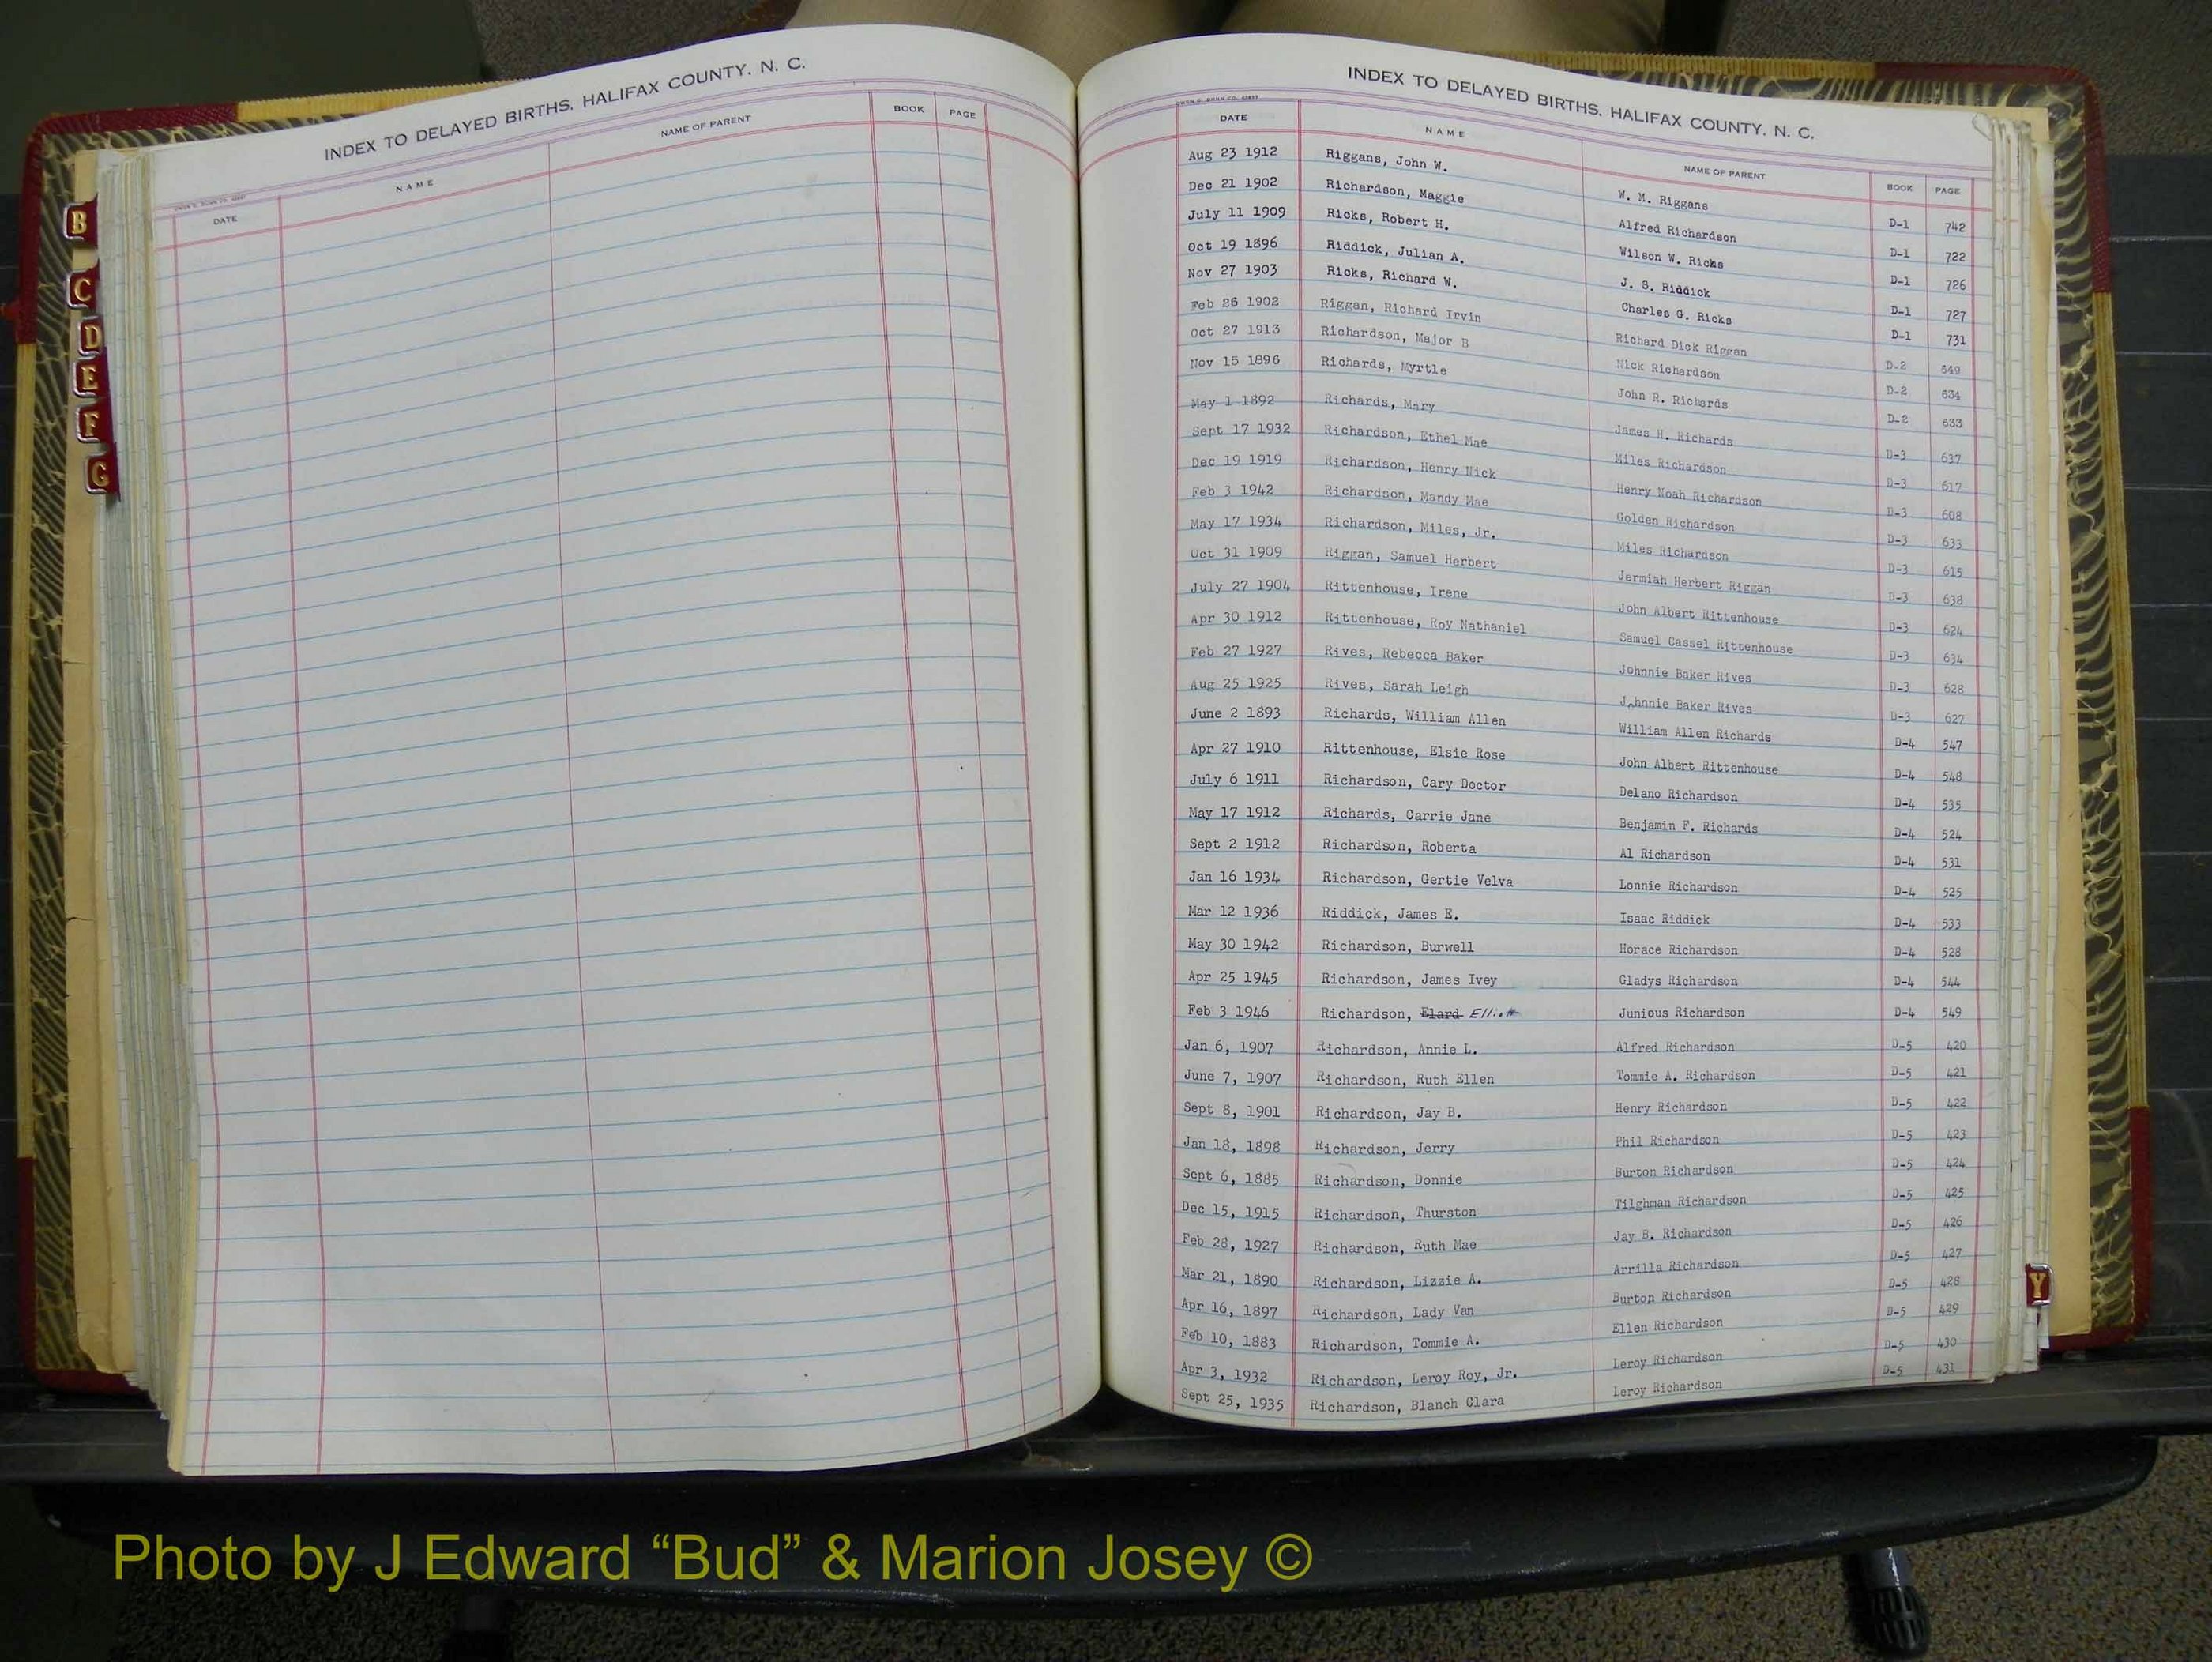 INDEX TO DELAYED BIRTHS. HALIFAX COUNTY. N. C.
DATE NAME NAME OF PARENT BOOK PAGE
B
C
D
E
F
G
INDEX TO DELAYED BIRTHS. HALIFAX COUNTY. N. C.
DATE NAME NAME OF PARENT BOOK PAGE
Aug 23 1912 Riggans, John W. W. M. Riggans D-1 742
Dec 21 1902 Richardson, Maggie Alfred Richardson D-1 722
July 11 1909 Ricks, Robert H. Wilson W. Ricks D-1 726
Oct 19 1896 Riddick, Julian A. J. S. Riddick D-1 727
Nov 27 1903 Ricks, Richard W. Charles G. Ricks D-1 731
Feb 26 1902 Riggan, Richard Irvin Richard Dick Riggan D-2 649
Oct 27 1913 Richardson, Major B Nick Richardson D-2 634
Nov 15 1896 Richards, Myrtle John R. Richards D-2 633
May 1 1892 Richards, Mary James H. Richards D-3 637
Sept 17 1932 Richardson, Ethel Mae Miles Richardson D-3 617
Dec 19 1919 Richardson, Henry Nick Henry Noah Richardson D-3 608
Feb 3 1942 Richardson, Mandy Mae Golden Richardson D-3 633
May 17 1934 Richardson, Miles, Jr. Miles Richardson D-3 615
Oct 31 1909 Riggan, Samuel Herbert Jermiah Herbert Riggan D-3 638
July 27 1904 Rittenhouse, Irene John Albert Rittenhouse D-3 624
Apr 30 1912 Rittenhouse, Roy Nathaniel Samuel Cassel Rittenhouse D-3 634
Feb 27 1927 Rives, Rebecca Baker Johnnie Baker Rives D-3 628
Aug 25 1925 Rives, Sarah Leigh Johnnie Baker Rives D-3 627
June 2 1893 Richards, William Allen William Allen Richards D-4 547
Apr 27 1910 Rittenhouse, Elsie Rose John Albert Rittenhouse D-4 548
July 6 1911 Richardson, Cary Doctor Delano Richardson D-4 535
May 17 1912 Richards, Carrie Jane Benjamin F. Richards D-4 524
Sept 2 1912 Richardson, Roberta Al Richardson D-4 531
Jan 16 1934 Richardson, Gertie Velva Lonnie Richardson D-4 525
Mar 12 1936 Riddick, James E. Isaac Riddick D-4 533
May 30 1942 Richardson, Burwell Horace Richardson D-4 528
Apr 25 1945 Richardson, James Ivey Gladys Richardson D-4 544
Feb 3 1946 Richardson, Elard Elliott Junious Richardson D-4 549
Jan 6, 1907 Richardson, Annie L. Alfred Richardson D-5 420
June 7, 1907 Richardson, Ruth Ellen Tommie A. Richardson D-5 421
Sept 8, 1901 Richardson, Jay B. Henry Richardson D-5 422
Jan 18, 1898 Richardson, Jerry Phil Richardson D-5 423
Sept 6, 1885 Richardson, Donnie Burton Richardson D-5 424
Dec 15, 1915 Richardson, Thurston Tilghman Richardson D-5 425
Feb 28, 1927 Richardson, Ruth Mae Jay B. Richardson D-5 426
Mar 21, 1890 Richardson, Lizzie A. Arrilla Richardson D-5 427
Apr 16, 1897 Richardson, Lady Van Burton Richardson D-5 428
Feb 10, 1883 Richardson, Tommie A. Ellen Richardson D-5 429
Apr 3, 1932 Richardson, Leroy Roy, Jr. Leroy Richardson D-5 430
Sept 25, 1935 Richardson, Blanch Clara Leroy Richardson D-5 431
Y
Photo by J Edward “Bud” & Marion Josey ©